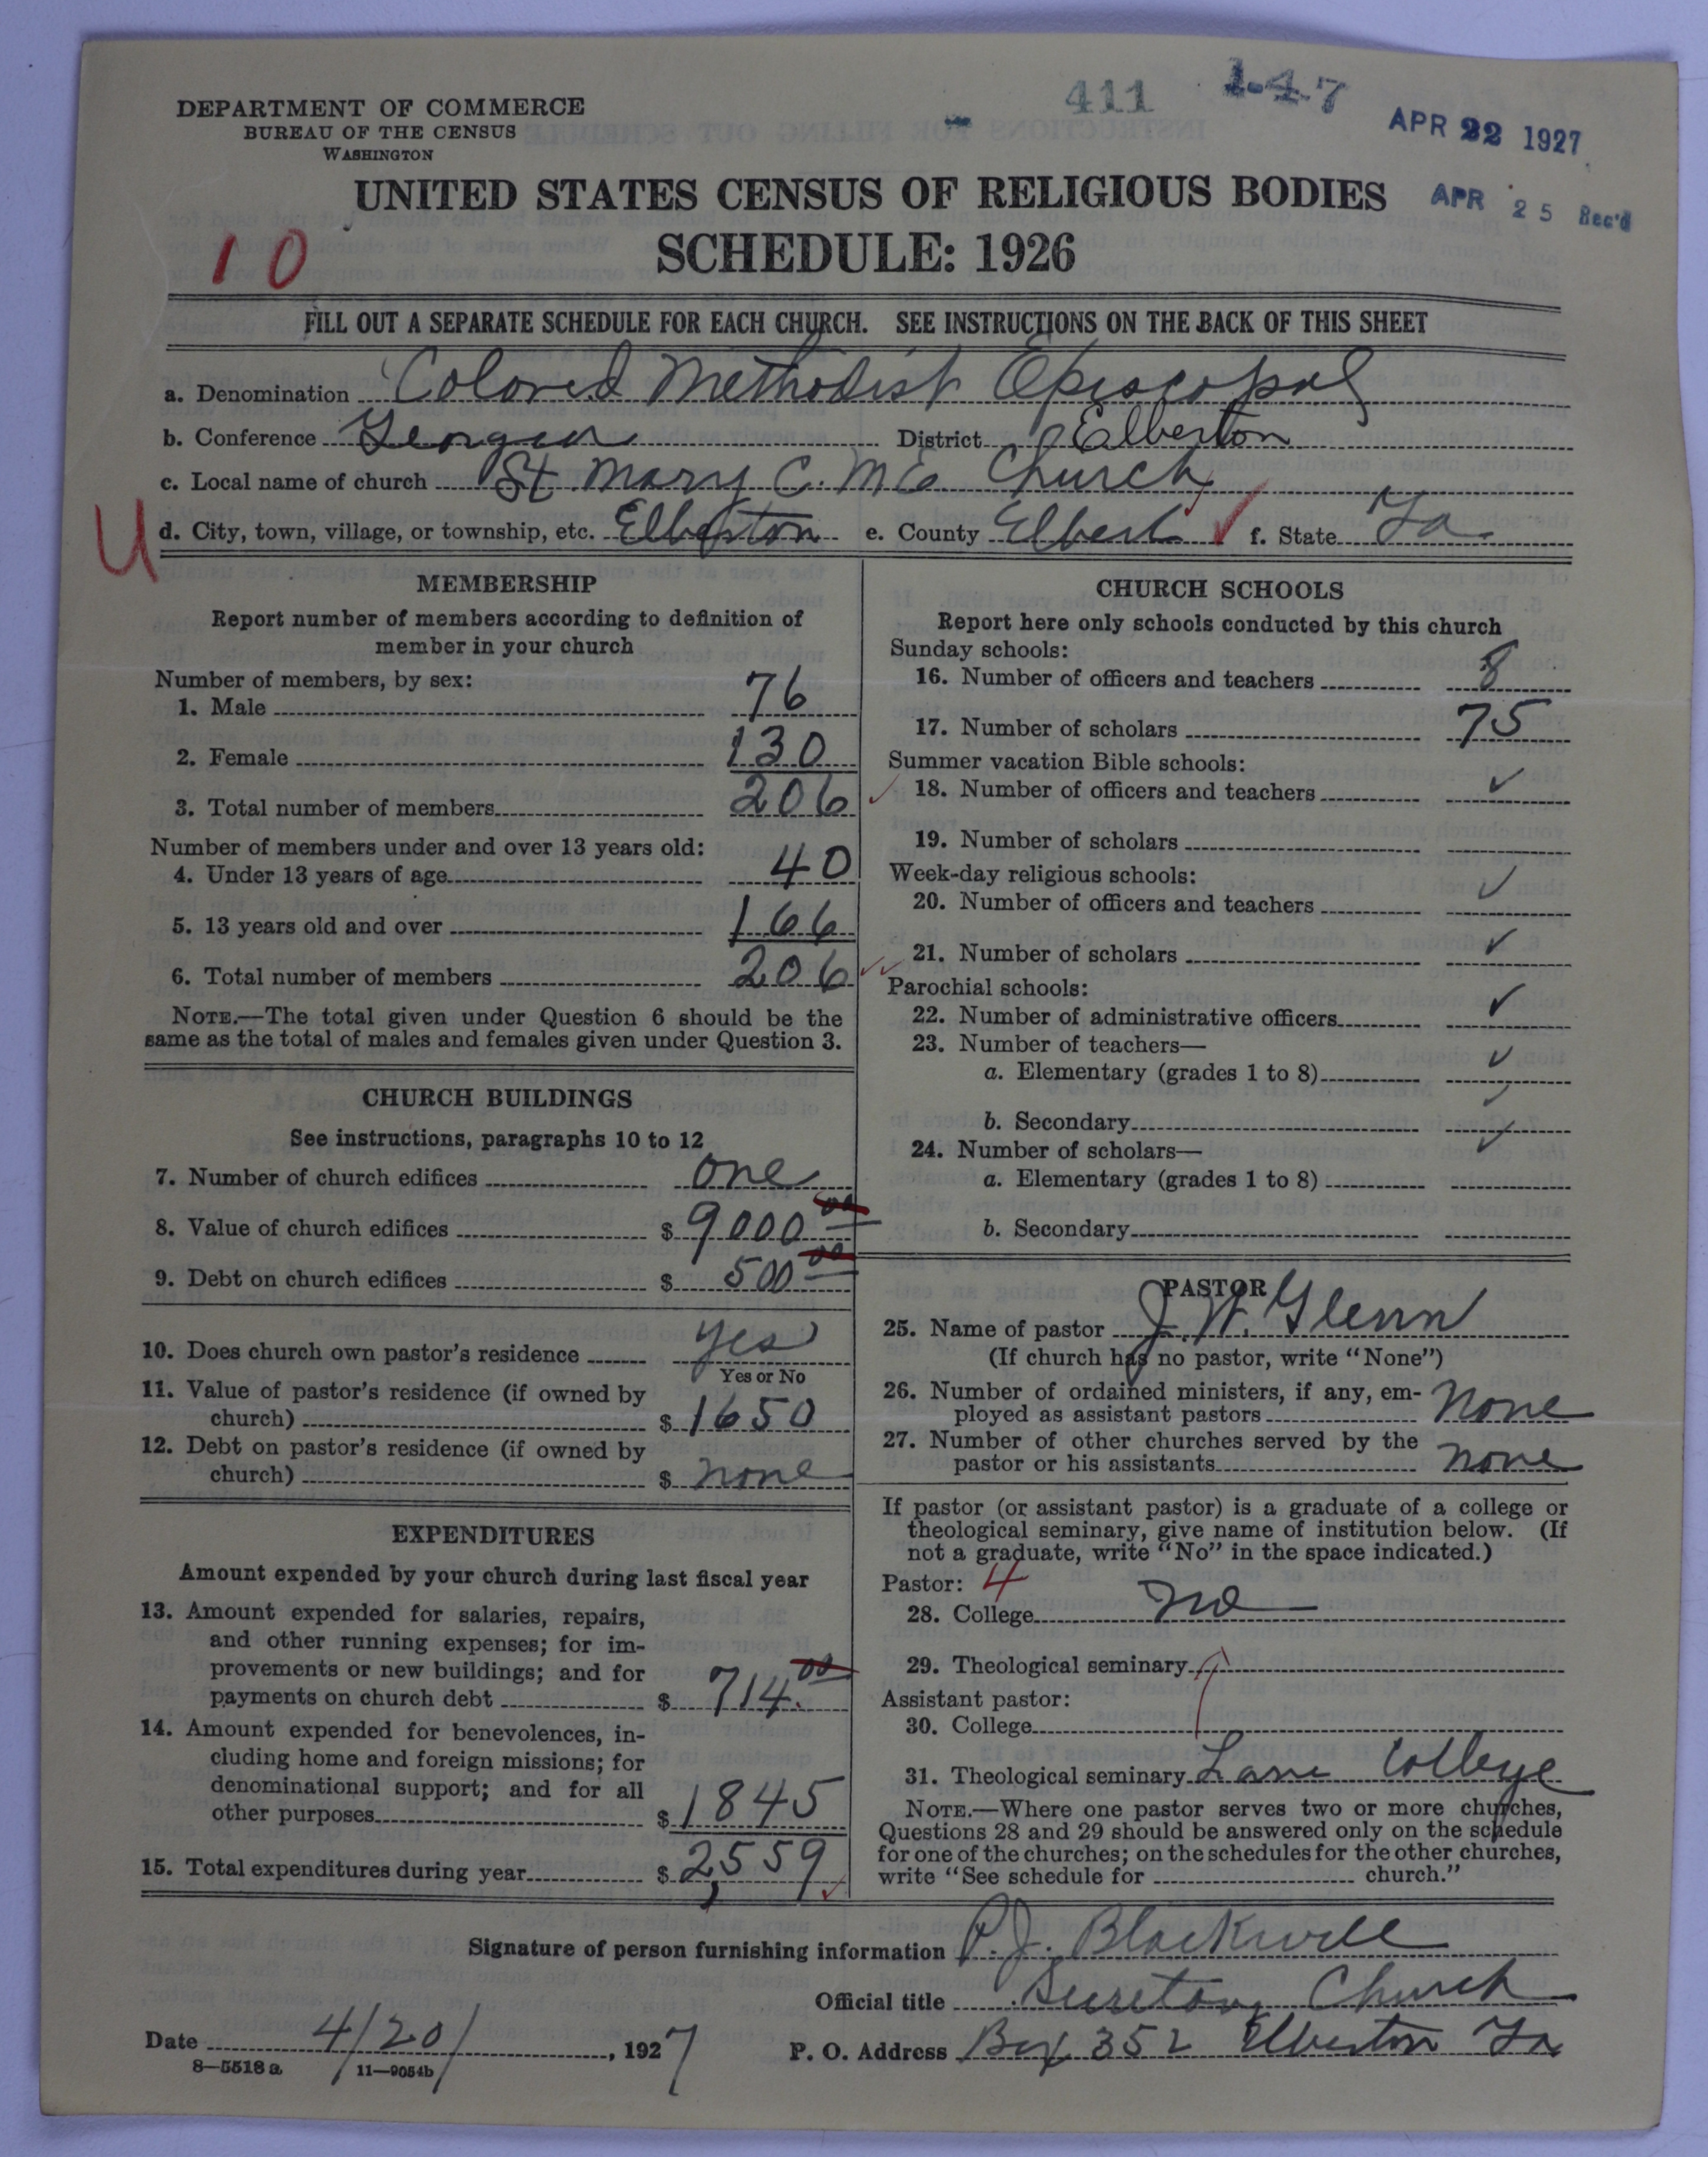 411 1-47
APR 22 1927
APR 25 Rec'd
DEPARTMENT OF COMMERCE
BUREAU OF THE CENSUS
WASHINGTON
UNITED STATES CENSUS OF RELIGIOUS BODIES
SCHEDULE: 1926
10
FILL OUT A SEPARATE SCHEDULE FOR EACH CHURCH. SEE INSTRUCTIONS ON THE BACK OF THIS SHEET
a. Denomination Colored Methodist Episcopal
b. Conference Georgia District Elberton
c. Local name of church St. Mary C. M E Church
U
d. City, town, village, or township, etc. Elberton e. County Elbert ✓ f. State Ga.
MEMBERSHIP
Report number of members according to definition of
member in your church
Number of members, by sex:
1. Male 76
2. Female 130
3. Total number of members 206 ✓
Number of members under and over 13 years old:
4. Under 13 years of age 40
5. 13 years old and over 166
6. Total number of members 206 ✓✓
NOTE.—The total given under Question 6 should be the
same as the total of males and females given under Question 3.
CHURCH BUILDINGS
See instructions, paragraphs 10 to 12
7. Number of church edifices one
8. Value of church edifices $ 9000 00
9. Debt on church edifices $ 500 00
10. Does church own pastor's residence yes
Yes or No
11. Value of pastor's residence (if owned by
church) $ 1650
12. Debt on pastor's residence (if owned by
church) $ none
EXPENDITURES
Amount expended by your church during last fiscal year
13. Amount expended for salaries, repairs,
and other running expenses; for im-
provements or new buildings; and for
payments on church debt $ 714.00
14. Amount expended for benevolences, in-
cluding home and foreign missions; for
denominational support; and for all
other purposes $ 1845
15. Total expenditures during year $ 2,559 ✓
CHURCH SCHOOLS
Report here only schools conducted by this church
Sunday schools:
16. Number of officers and teachers 8
17. Number of scholars 75
Summer vacation Bible schools:
18. Number of officers and teachers ✓
19. Number of scholars
Week-day religious schools:
20. Number of officers and teachers ✓
21. Number of scholars ✓
Parochial schools:
22. Number of administrative officers ✓
23. Number of teachers—
a. Elementary (grades 1 to 8) ✓
b. Secondary ✓
24. Number of scholars— ✓
a. Elementary (grades 1 to 8)
b. Secondary
PASTOR
25. Name of pastor J. W. Glenn
(If church has no pastor, write "None")
26. Number of ordained ministers, if any, em-
ployed as assistant pastors None
27. Number of other churches served by the
pastor or his assistants none
If pastor (or assistant pastor) is a graduate of a college or
theological seminary, give name of institution below. (If
not a graduate, write "No" in the space indicated.)
Pastor: 4
28. College no
29. Theological seminary
Assistant pastor:
30. College
31. Theological seminary Lane College
NOTE.—Where one pastor serves two or more churches,
Questions 28 and 29 should be answered only on the schedule
for one of the churches; on the schedules for the other churches,
write "See schedule for church."
Signature of person furnishing information P. J. Blackwell
Official title Secretary Church
Date 4/20/, 1927 P. O. Address Box 352 Elberton Ga
8—5518 a 11—9054b